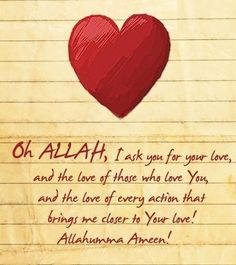 Oh ALLAH, I ask you for your love,
and the love of those who love You,
and the love of every action that
brings me closer to Your love!
Allahumma Ameen!